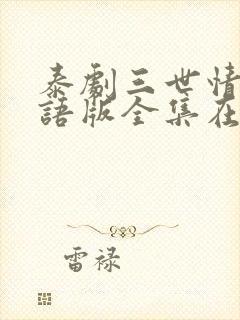 泰劇三世情
語版全集在
雷禄